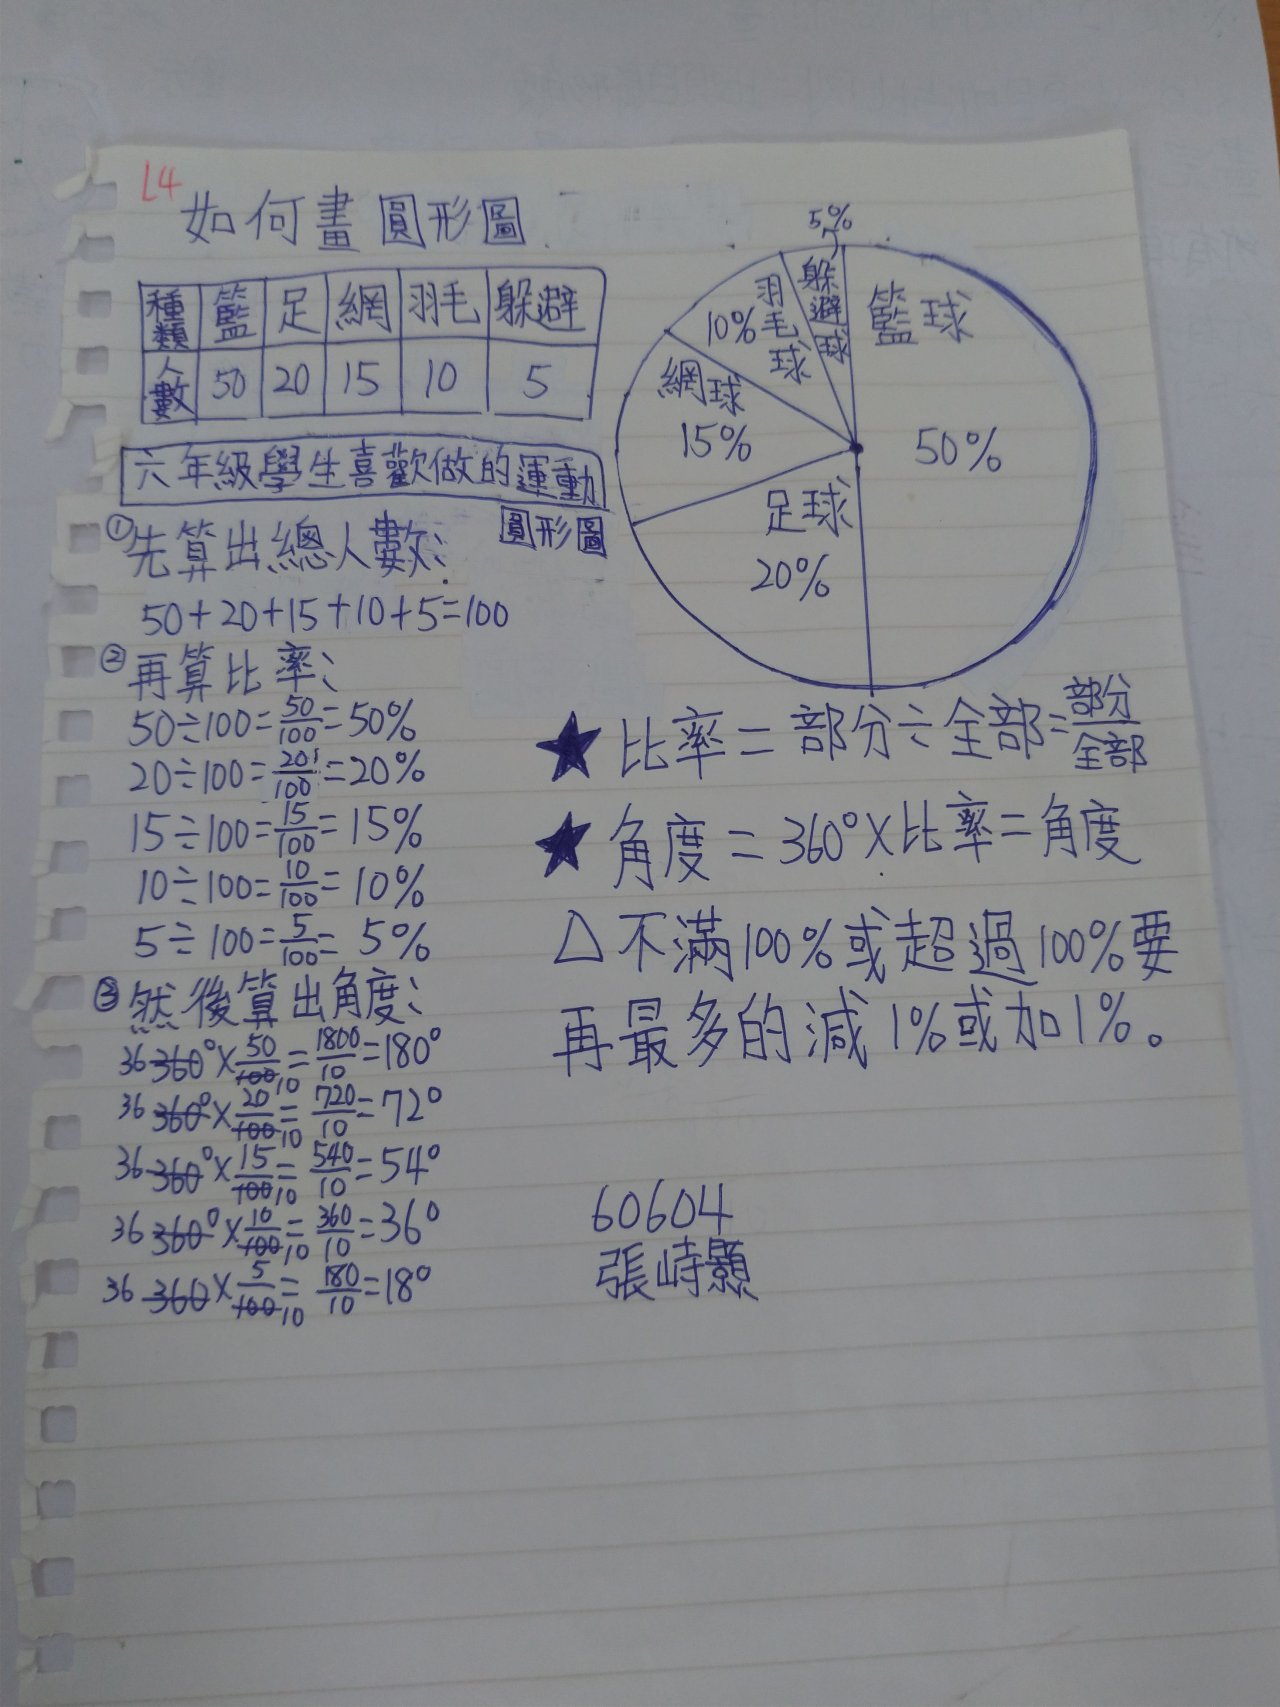 L4
如何畫圓形圖
種類 籃 足 網 羽毛 躲避
人數 50 20 15 10 5
六年級學生喜歡做的運動
圓形圖
①先算出總人數:
50+20+15+10+5=100
②再算比率:
50÷100=50/100=50%
20÷100=20/100=20%
15÷100=15/100=15%
10÷100=10/100=10%
5÷100=5/100=5%
③然後算出角度:
36 360°×50/100 10=1800/10=180°
36 360°×20/100 10=720/10=72°
36 360°×15/100 10=540/10=54°
36 360°×10/100 10=360/10=36°
36 360×5/100 10=180/10=18°
5%
躲避球
籃球
50%
羽毛球
10%
網球
15%
足球
20%
★比率=部分÷全部=部分/全部
★角度=360°×比率=角度
△不滿100%或超過100%要
再最多的減1%或加1%。
60604
張峙顥